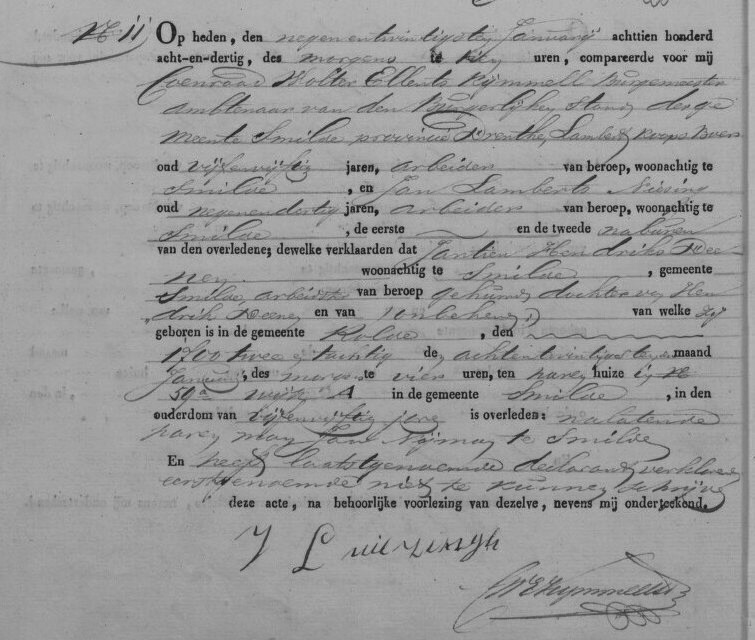 No 11 Op heden, den negen en twintigsten Januarij achttien honderd
acht-en-dertig, des morgens te tien uren, compareerde voor mij
Coenraad Wolter Ellents Kymmell Burgemeester
ambtenaar van den Burgerlijken Stand der ge
meente Smilde, provincie Drenthe, Lambert Koops Boers
oud vijfenvijftig jaren, arbeider van beroep, woonachtig te
Smilde, en Jan Lamberts
oud negenendertig jaren, arbeider van beroep, woonachtig te
Smilde, de eerste en de tweede naburen
van den overledene; dewelke verklaarden dat Jantien Hendriks Dee
nen woonachtig te Smilde, gemeente
Smilde, arbeidster van beroep gehuwd dochter van Hen
drik Deenen en van onbekend van welke zij
geboren is in de gemeente Rolde, den
1700 twee en tachtig den achtentwintigsten der maand
Januarij, des morgens te vier uren, ten haren huize in no
59a wijk A in de gemeente Smilde, in den
ouderdom van vijfenvijftig jare is overleden: nalatende
haren man Jan te Smilde
En heeft laatstgenoemde declarant verklare
eerstgenoemde niet te kunnen schrijven
deze acte, na behoorlijke voorlezing van dezelve, nevens mij onderteekend.
J L
CWEKymmell